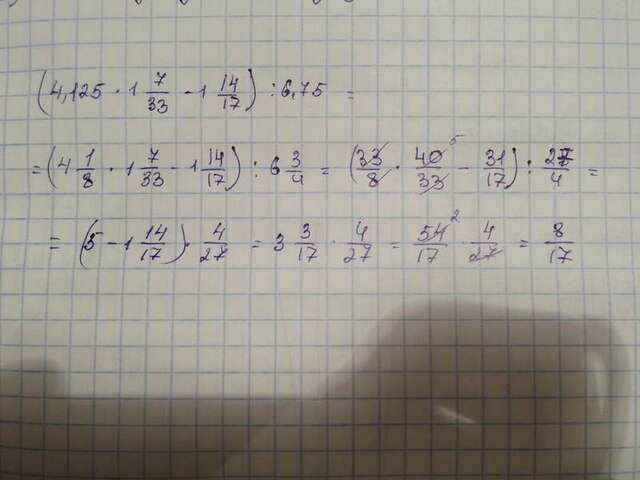 (4,125 · 1 7/33 - 1 14/17) : 6,75 =
= (4 1/8 · 1 7/33 - 1 14/17) : 6 3/4 = (33/8 · 40/33 5 - 31/17) : 27/4 =
= (5 - 1 14/17) · 4/27 = 3 3/17 · 4/27 = 54/17 2 · 4/27 = 8/17